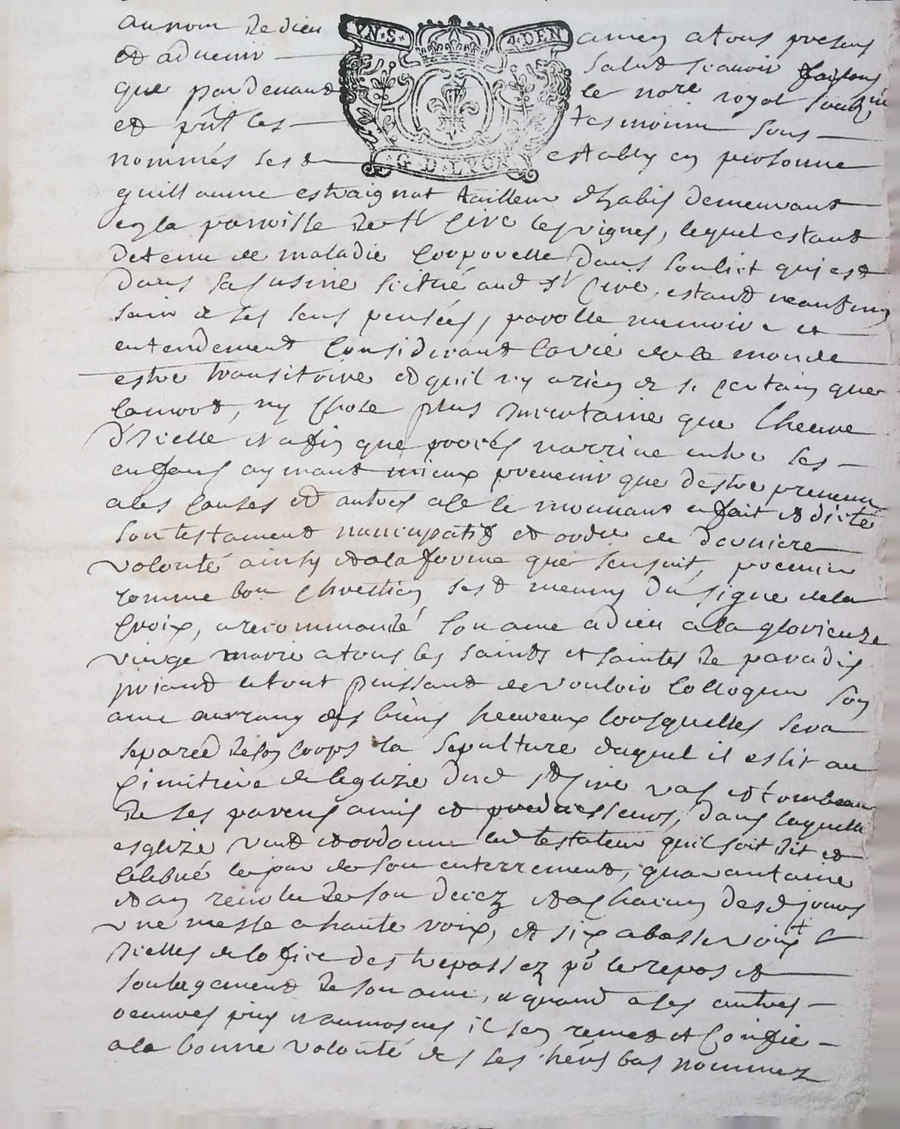 au nom de dieu amen a tous presens
et advenir salut scavoir faisons
que pardevant le nore royal soubz
et pnt les tesmoins sous
nommés s'est establi en personne
guillaume estraignat tailleur d'habis demeurant
en la parroisse de St Cire les vignes, lequel estant
detenu de maladie corporelle dans son lict qui est
dans sa cusine scitué aud St Cire, estant neantmoins
sain de ses sens pensées, parolle memoire et
entendement considerant la vie de ce monde
estre transitoire et quil ny a rien de si certain que
la mort, ny chose plus incertaine que l'heure
d'icelle et afin que procés narrive entre ses
enfans aymant mieux prevenir que destre prevenu
a ces causes et autres a ce le mouvant en fait et dicté
son testament nuncupatif et ordce de derniere
volonté ainsy et a la forme que sensuit, premier
comme bon chrestien sest meuny du signe de la
croix, a recommandé son ame a dieu a la glorieuze
vierge marie a tous les saints et saintes de paradis
priant le tout puissant de vouloir colloquer son
ame au rang des biens heureux lorsquelles sera
separeé de son corps la sepulture duquel il eslit au
cimitiere de leglize dud St Cire vas et tombeau
de ses parens amis et predicesseurs, dans laquelle
esglize veut et ordonne led testateur quil soit dit et
celebré le jour de son enterrement, quarantaine
et an revolu de son decez et a chacun desd jours
une messe a haute voix, et six a basse voix
dicelles de lofice des trepassez pr le repos et
soulagement de son ame, et quant a ses autres
oeuvres pies et aumosnes il sen remet et confie
a la bonne volonté de ses hers bas nommez
G. D. LYON